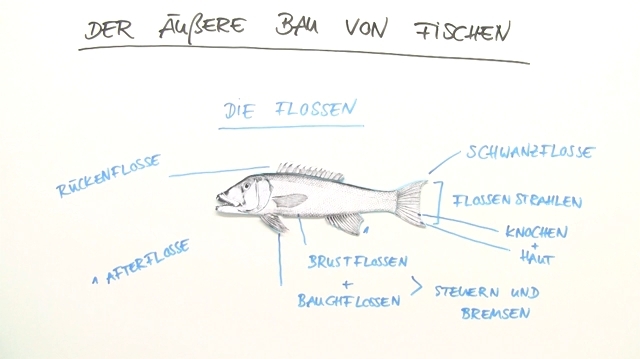 DER ÄUßERE BAU VON FISCHEN
DIE FLOSSEN
SCHWANZFLOSSE
RÜCKENFLOSSE
FLOSSEN STRAHLEN
KNOCHEN
+
HAUT
^ AFTERFLOSSE
^
BRUSTFLOSSEN
+
BAUCHFLOSSEN > STEUERN UND
BREMSEN